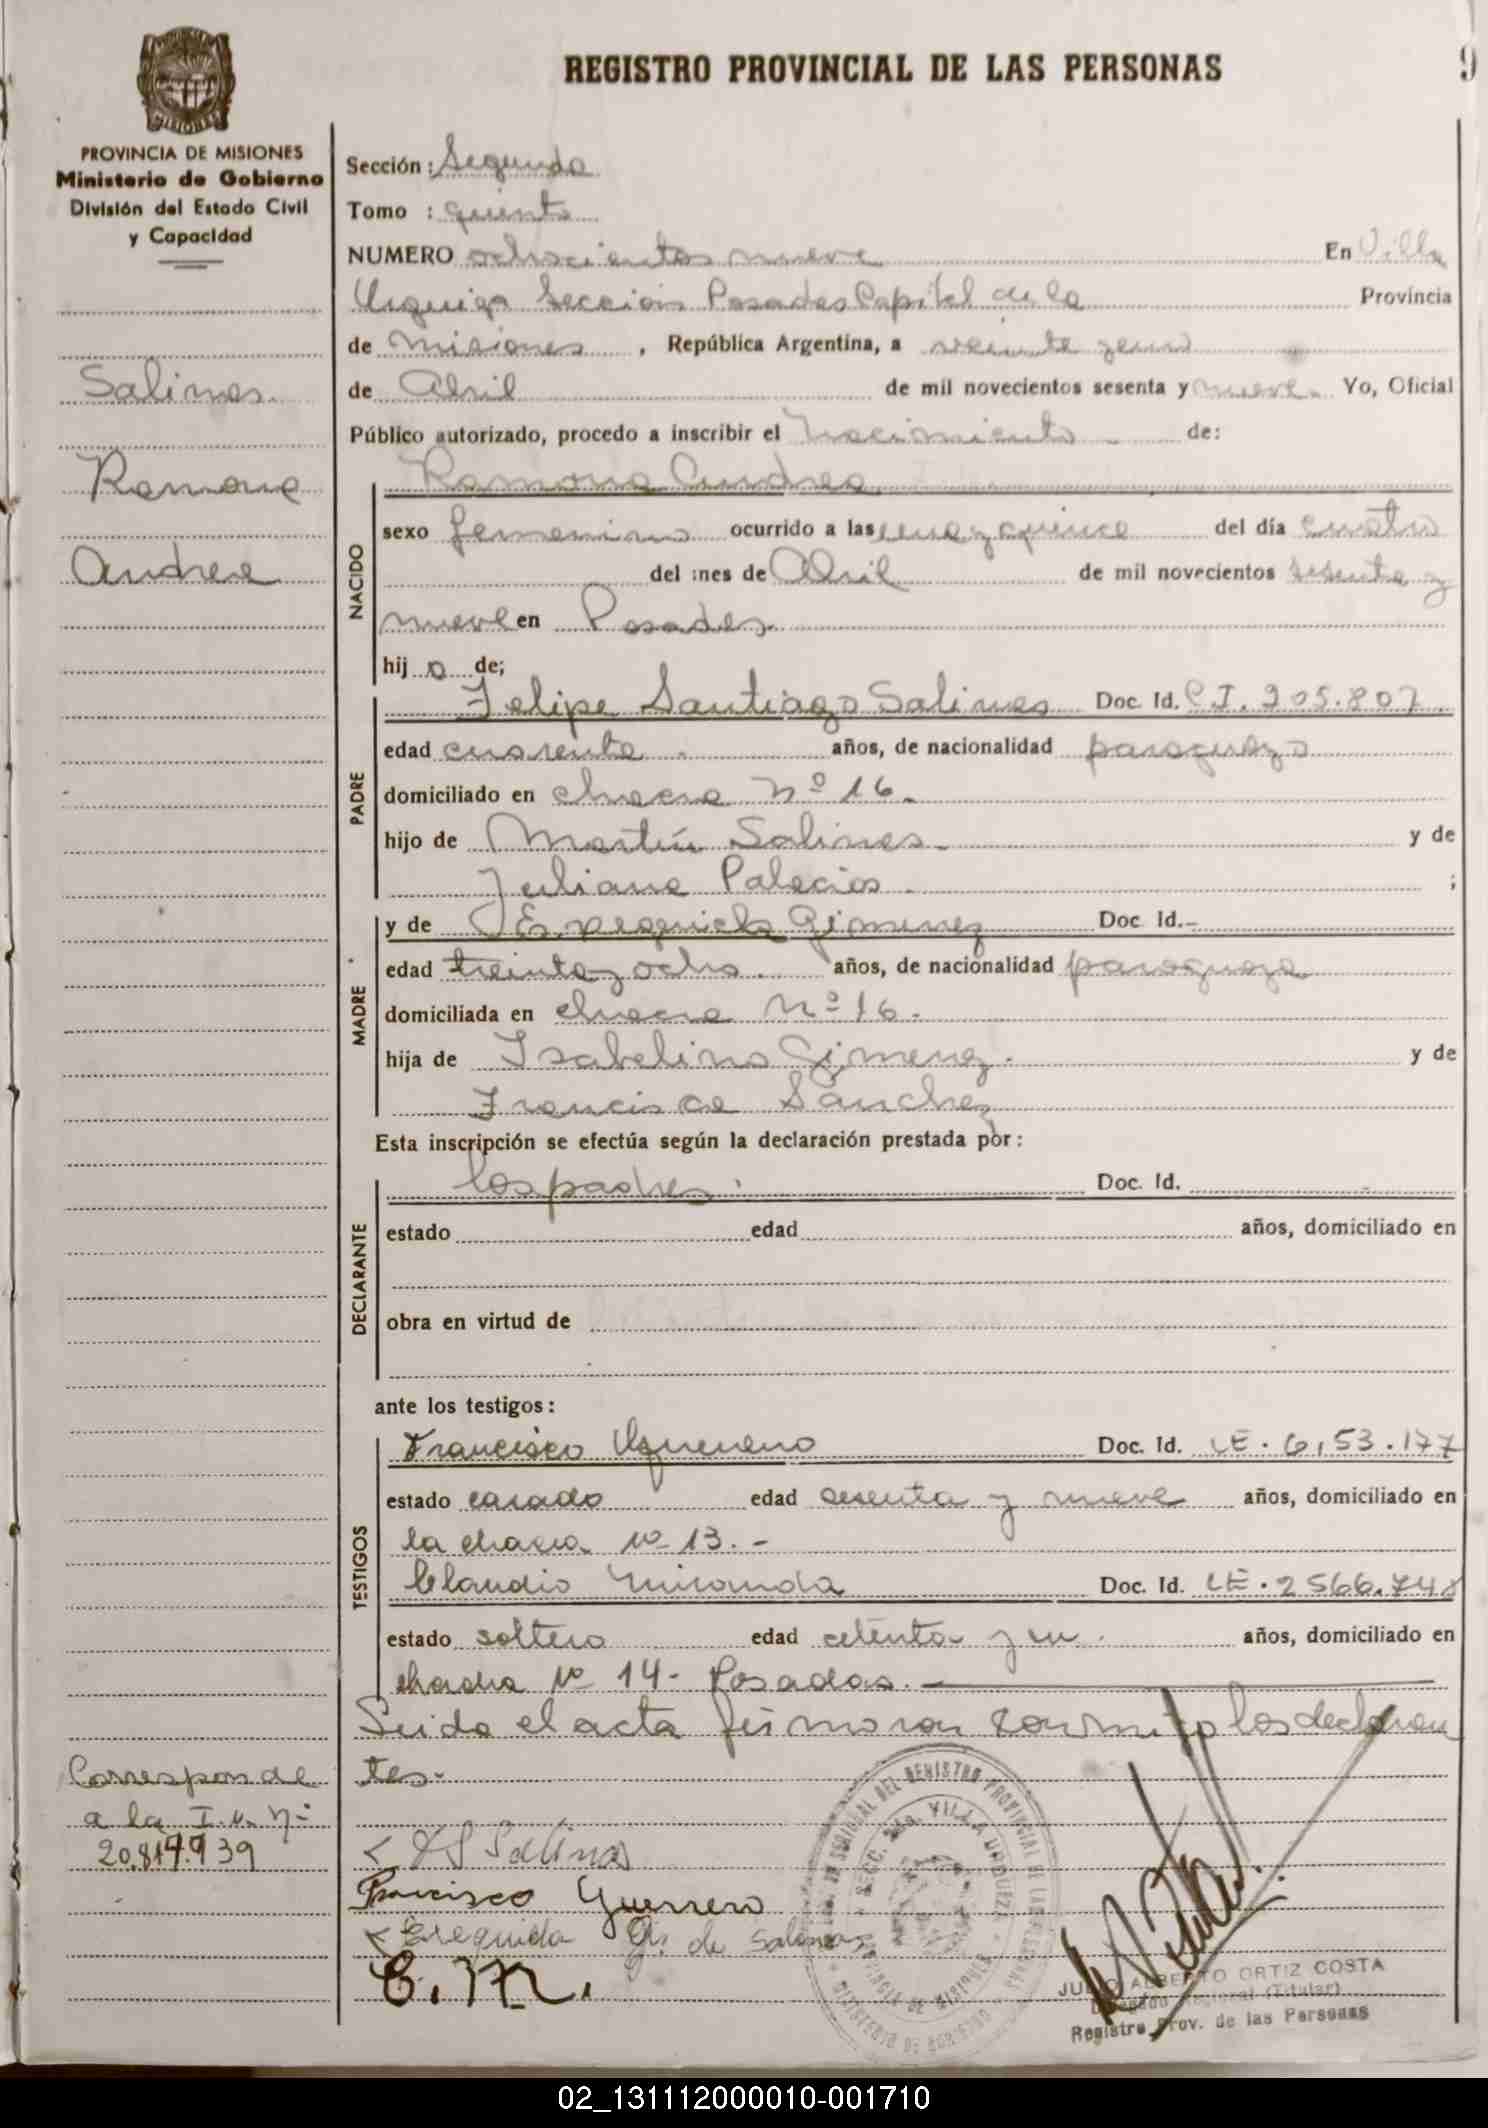 REGISTRO PROVINCIAL DE LAS PERSONAS
9
MISIONES
PROVINCIA DE MISIONES
Ministerio de Gobierno
División del Estado Civil
y Capacidad
Salinas
Ramona
Andrea
Corresponde
a la I.M. Nº
Sección: Segunda
Tomo : quinto
NUMERO ochocientos nueve En Villa
Urquiza Sección Posadas Capital de la Provincia
de Misiones, República Argentina, a veinte y uno
de Abril de mil novecientos sesenta y nueve. Yo, Oficial
Público autorizado, procedo a inscribir el Nacimiento de:
NACIDO
Ramona Andrea
sexo femenino ocurrido a las una y quince del día cuatro
del mes de Abril de mil novecientos sesenta y
nueve en Posadas
hij a de;
PADRE
Felipe Santiago Salinas Doc. Id. C.I. 205.807
edad cuarenta años, de nacionalidad paraguayo
domiciliado en chacra Nº 16.
hijo de Martín Salinas. y de
Juliana Palacios. ;
MADRE
y de Exequiela Gimenez Doc. Id.-
edad treinta y ocho. años, de nacionalidad paraguaya
domiciliada en chacra Nº 16.
hija de Isabelino Gimenez. y de
Francisca Sánchez
Esta inscripción se efectúa según la declaración prestada por:
DECLARANTE
los padres. Doc. Id.
estado edad años, domiciliado en
obra en virtud de
ante los testigos:
TESTIGOS
Francisco Doc. Id. LE. 6,53.177
estado casado edad sesenta y nueve años, domiciliado en
la chacra Nº 13.-
Claudio Miranda Doc. Id. LE. 2566.748
estado soltero edad setenta y un. años, domiciliado en
chacra Nº 14- Posadas.
Leida el acta firmaron conmigo los declaran
tes-
Salinas
Francisco Guerrero
Exequida G. de Salinas
C. M.
SECC. 2da. VILLA URQUIZA
PROVINCIA DE MISIONES
MINISTERIO DE GOBIERNO
JULIO ALBERTO ORTIZ COSTA
Delegado Regional (Titular)
Registro Prov. de las Personas
02_131112000010-001710